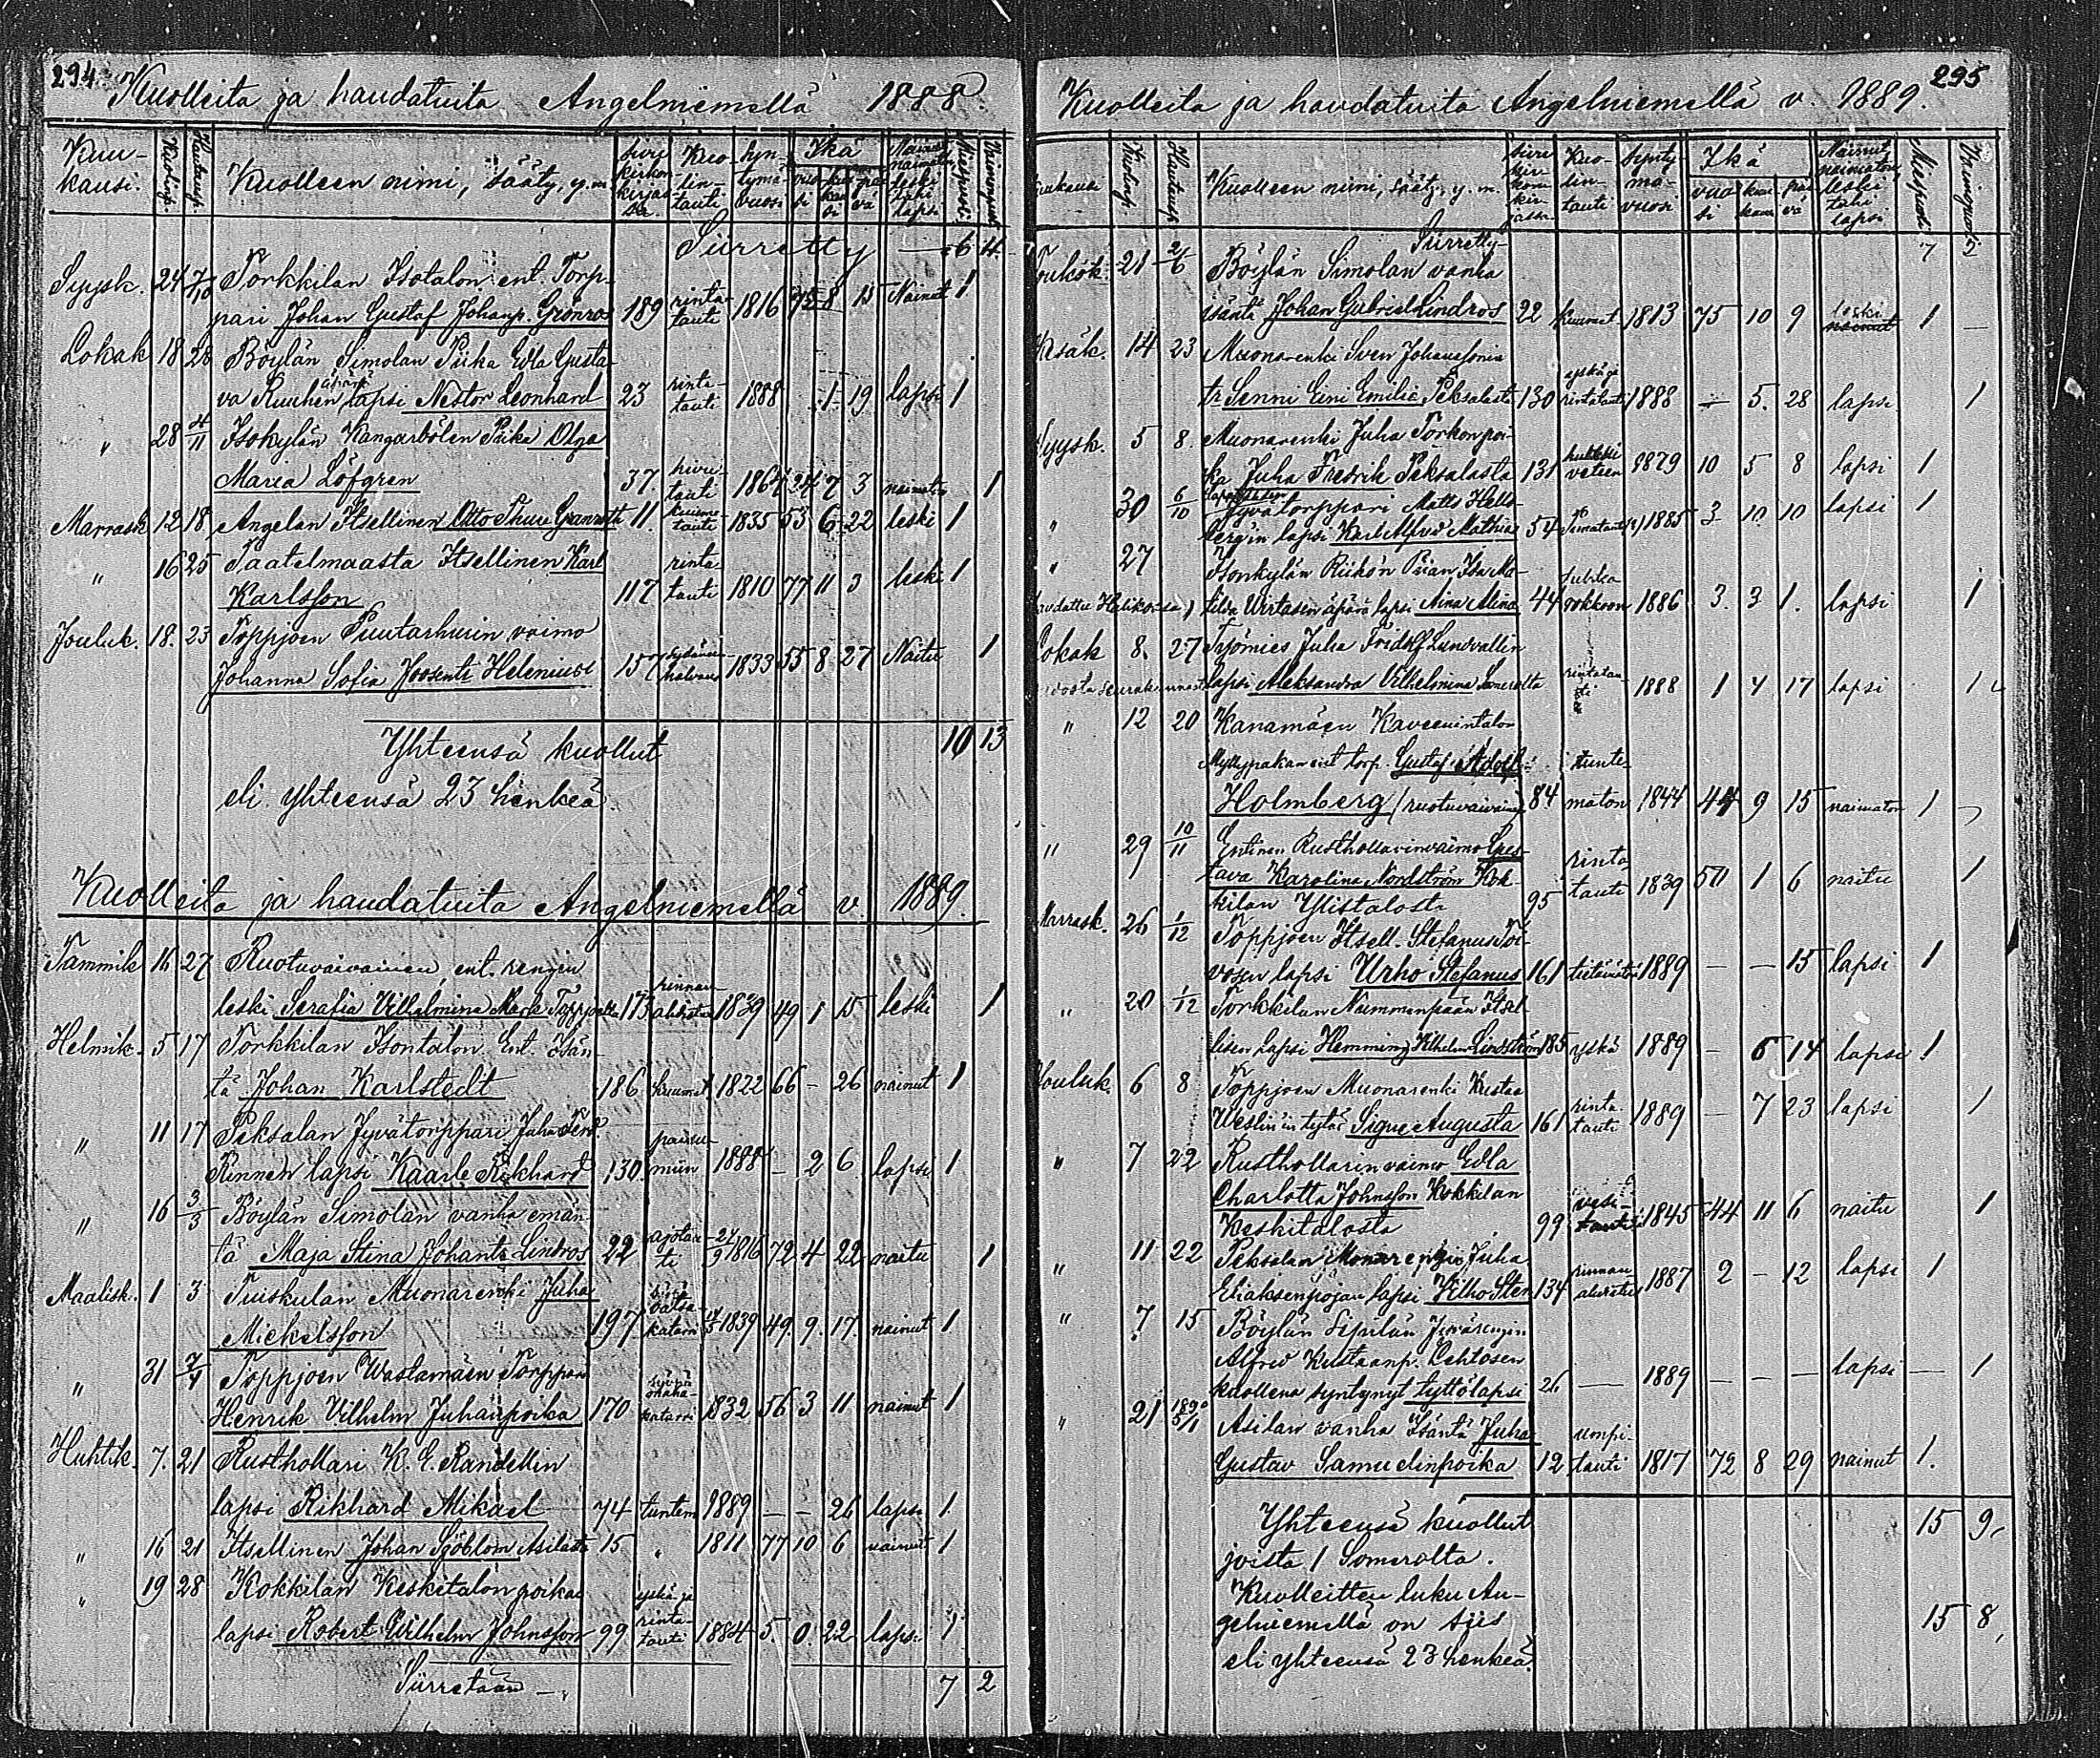 294
Kuolleita ja haudatuita Angelniemellä 1888.
Kuu-kausi. Kuolinp. Hautausp. Kuolleen nimi, sääty, y.m. sivu kirkon-kirjas-sa. Kuo-lin-tauti Syn-tymä-vuosi Ikä vuo-si kuu-kau-si päi-vä Nainut naimaton leski tahi lapsi Miespuoli Vaimonpuoli
Siirretty 6 4
Syysk. 24 7/10 Torkkilan Isotalon ent. Torp-
pari Johan Gustaf Johanp. Grönros 189 rinta-tauti 1816 8 15 Nainut 1
Lokak 18 28 Böylän Simolan Piika Edla Gusta-
va Ruuhen äpärä lapsi Nestor Leonhard 23 rinta-tauti 1888 1 19 lapsi 1
" 28 4/11 Isokylän Kangarbölen Piika Olga
Maria Löfgren 37. tauti 1864 24 7 3 naimaton 1
Marrask 12 18 Angelan Itsellinen Otto Thure Granroth 11. tauti 1835 53 6 22 leski 1
" 16 25 Taatelmaasta Itsellinen Karl
Karlsson 117 rinta-tauti 1810 77 11 3 leski 1
Jouluk. 18. 23 Toppjoen Puutarhurin vaimo
Johanna Sofia Joosentr Helenius 157 sydämen halvaus 1833 55 8 27 Naitu 1
Yhteensä kuollut 10 13
eli yhteensä 23 henkeä.
Kuolleita ja haudatuita Angelniemellä v. 1889.
Tammik 16 27 Ruotuvaivainen, ent. rengin
leski Serafia Vilhelmina Toppjoelta 173 rinnan ahdistus 1839 49 1 15 leski 1
Helmik. 5 17 Torkkilan Isontalon Ent. Isän-
tä Johan Karlstedt 186 kuumet 1822 66 - 26 nainut 1
" 11 17 Peksalan Jyvätorppari Juha Ferd.
Rinneen lapsi Kaarle Rikhard 130. 1888 - 2 6 lapsi 1
" 16 3/3 Böylän Simolan vanha emän-
tä Maja Stina Johantr Lindros 22 ajotau-ti 24/9 1816 72 4 22 naitu 1
Maalisk. 1 3 Tuiskulan Muonarenki Juha
Mickelsson 197 katarri 1839 49. 9. 17. nainut 1
" 31 7/4 Toppjoen Wastamäen Torppari
Henrik Vilhelm Juhanpoika 170 katarri 1832 56 3 11 nainut 1
Huhtik. 7. 21 Rusthollari K. E. Randellin
lapsi Rikhard Mikael 74 tuntem 1889 - - 26 lapsi 1.
" 16 21 Itsellinen Johan Sjöblom Asilasta 15 " 1811 77 10 6 nainut 1
" 19 28 Kokkilan Keskitalon poika
lapsi Robert Wilhelm Johnsson 99 yskä ja rinta-tauti 1884 5. 0. 22 lapsi 1
Siirretään - 7 2
295
Kuolleita ja haudatuita Angelniemellä v. 1889.
Kuukausi Kuolinp. Hautausp. Kuolleen nimi, sääty, y.m. sivu kir-kon-kir-jassa Kuo-lin-tauti Synty-mä-vuosi Ikä vuo-si kuu-kausi päi-vä Nainut naimaton, leski tahi lapsi Miespuoli Vaimonpuoli
Siirretty 7
Toukok. 21 2/6 Böylän Simolan vanha
isäntä Johan Gabriel Lindros 22 kuumet 1813 75 10 9 leski nainut 1 -
Kesäk. 14 23 Muonarenki Sven Johanssonin
tr Senni Eini Emilia Peksalasta 130 rintatauti 1888 - 5. 28 lapsi 1
Syysk. 5 8. Muonarenki Juha Torkon poi-
ka Juha Fredrik Peksalasta 131 hukkui veteen 1879 10 5 8 lapsi 1
" 30 6/10 Jyvätorppari Matts Hell-
bergin lapsi Karl Alfred Mathias 54 1885 3 10 10 lapsi 1
" 27 Isonkylän Riikon Piian Ida Ma-
(haudattu Halikossa) tilda Wirtasen äpärä lapsi Aina Alina 44 tuhka rokkoon 1886 3. 3 1. lapsi 1
Lokak 8. 27 Työmies Juha Fridolf Lundvallin
lapsi Aleksandra Vilhelmina Somerolta rintatau-ti 1888 1 4 17 lapsi 1
" 12 20 Kanamäen Kaveenintalon
Myllypakan ent torp. Gustaf Adolf tunte-
Holmberg (ruotuvaivainen) 84 maton 1844 44 9 15 naimaton 1
" 29 10/11 Entinen Rusthollarinvaimo Gus-
tava Karolina Nordström Kok- rinta tauti 1839 50 1 6 naitu 1
kilan Ylistalosta 95
Marrask. 26 1/12 Toppjoen Itsell. Stefanus Toi-
vosen lapsi Urho Stefanus 161 1889 - - 15 lapsi 1
" 20 1/12 Torkkilan Nummenpään Itsel-
lisen lapsi Hemming Vilhelm Lindström 185 yskä 1889 - 5 14 lapsi 1
Jouluk. 6 8 Toppjoen Muonarenki Kustaa
Weslin'in tytär Signe Augusta 161 rinta tauti 1889 - 7 23 lapsi 1
" 7 22 Rusthollarin vaimo Edla
Charlotta Johnsson Kokkilan
Keskitalosta 99 vesi-tauti 1845 44 11 6 naitu 1
" 11 22 Peksalan Muonarengin Juha
Eliaksenpojan lapsi Vilho Sten 134 rinnan ahdistus 1887 2 - 12 lapsi 1
" 7 15 Böylän Sipilän Jyvärengin
Alfred Kustaanp. Lehtosen
kuollena syntynyt tyttölapsi 26 - 1889 - - - lapsi - 1
" 21 1890 5/1 Asilan vanha Isäntä Juha
Gustav Samuelinpoika 12 umpi-tauti 1817 72 8 29 nainut 1.
Yhteensä kuollut 15 9,
joista 1 Somerolta.
Kuolleitten luku An-
gelniemellä on siis 15 8,
eli yhteensä 23 henkeä.